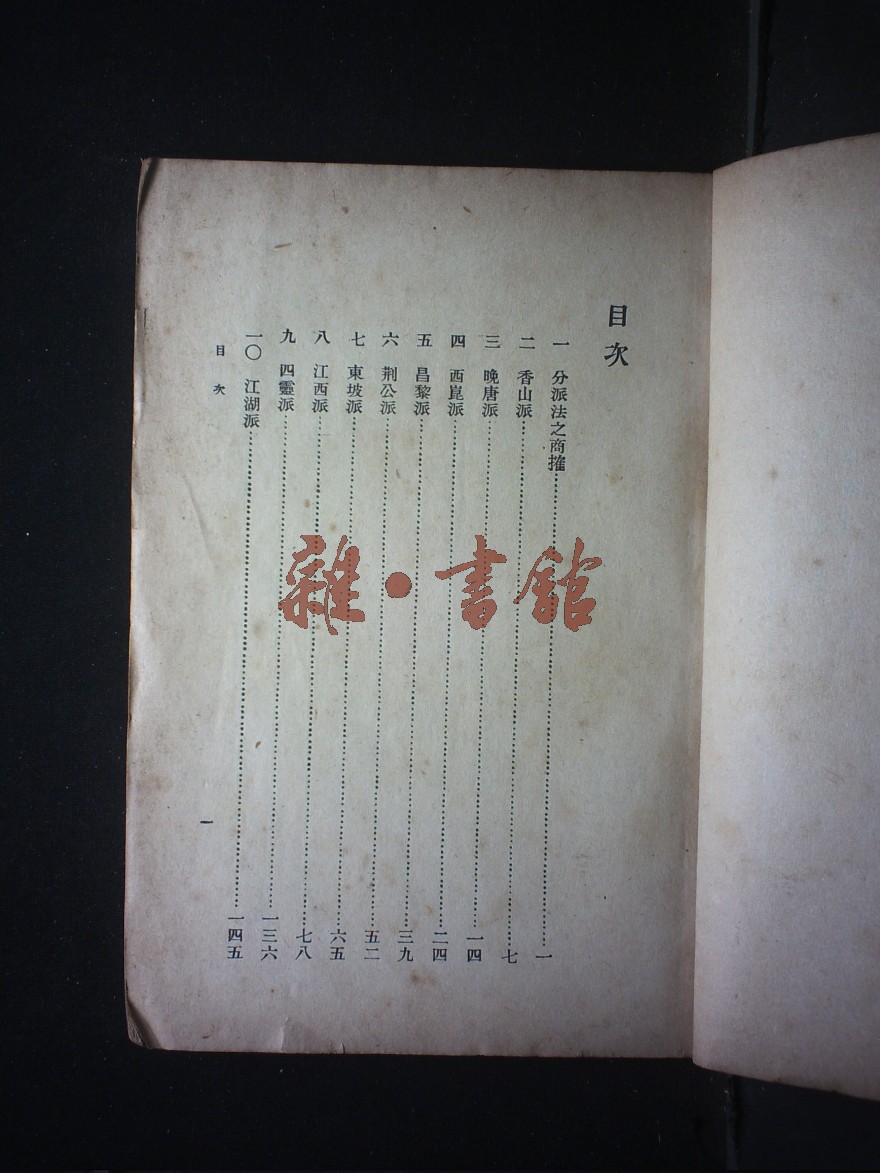 目次
一 分派法之商搉…一
二 香山派…七
三 晚唐派…一四
四 西崑派…二四
五 昌黎派…三九
六 荆公派…五二
七 東坡派…六五
八 江西派…七八
九 四靈派…一三六
一〇 江湖派…一四五
目次
一
雜·書館